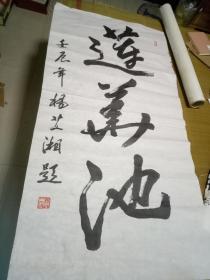 蓮華池
壬辰年楊艾湘題